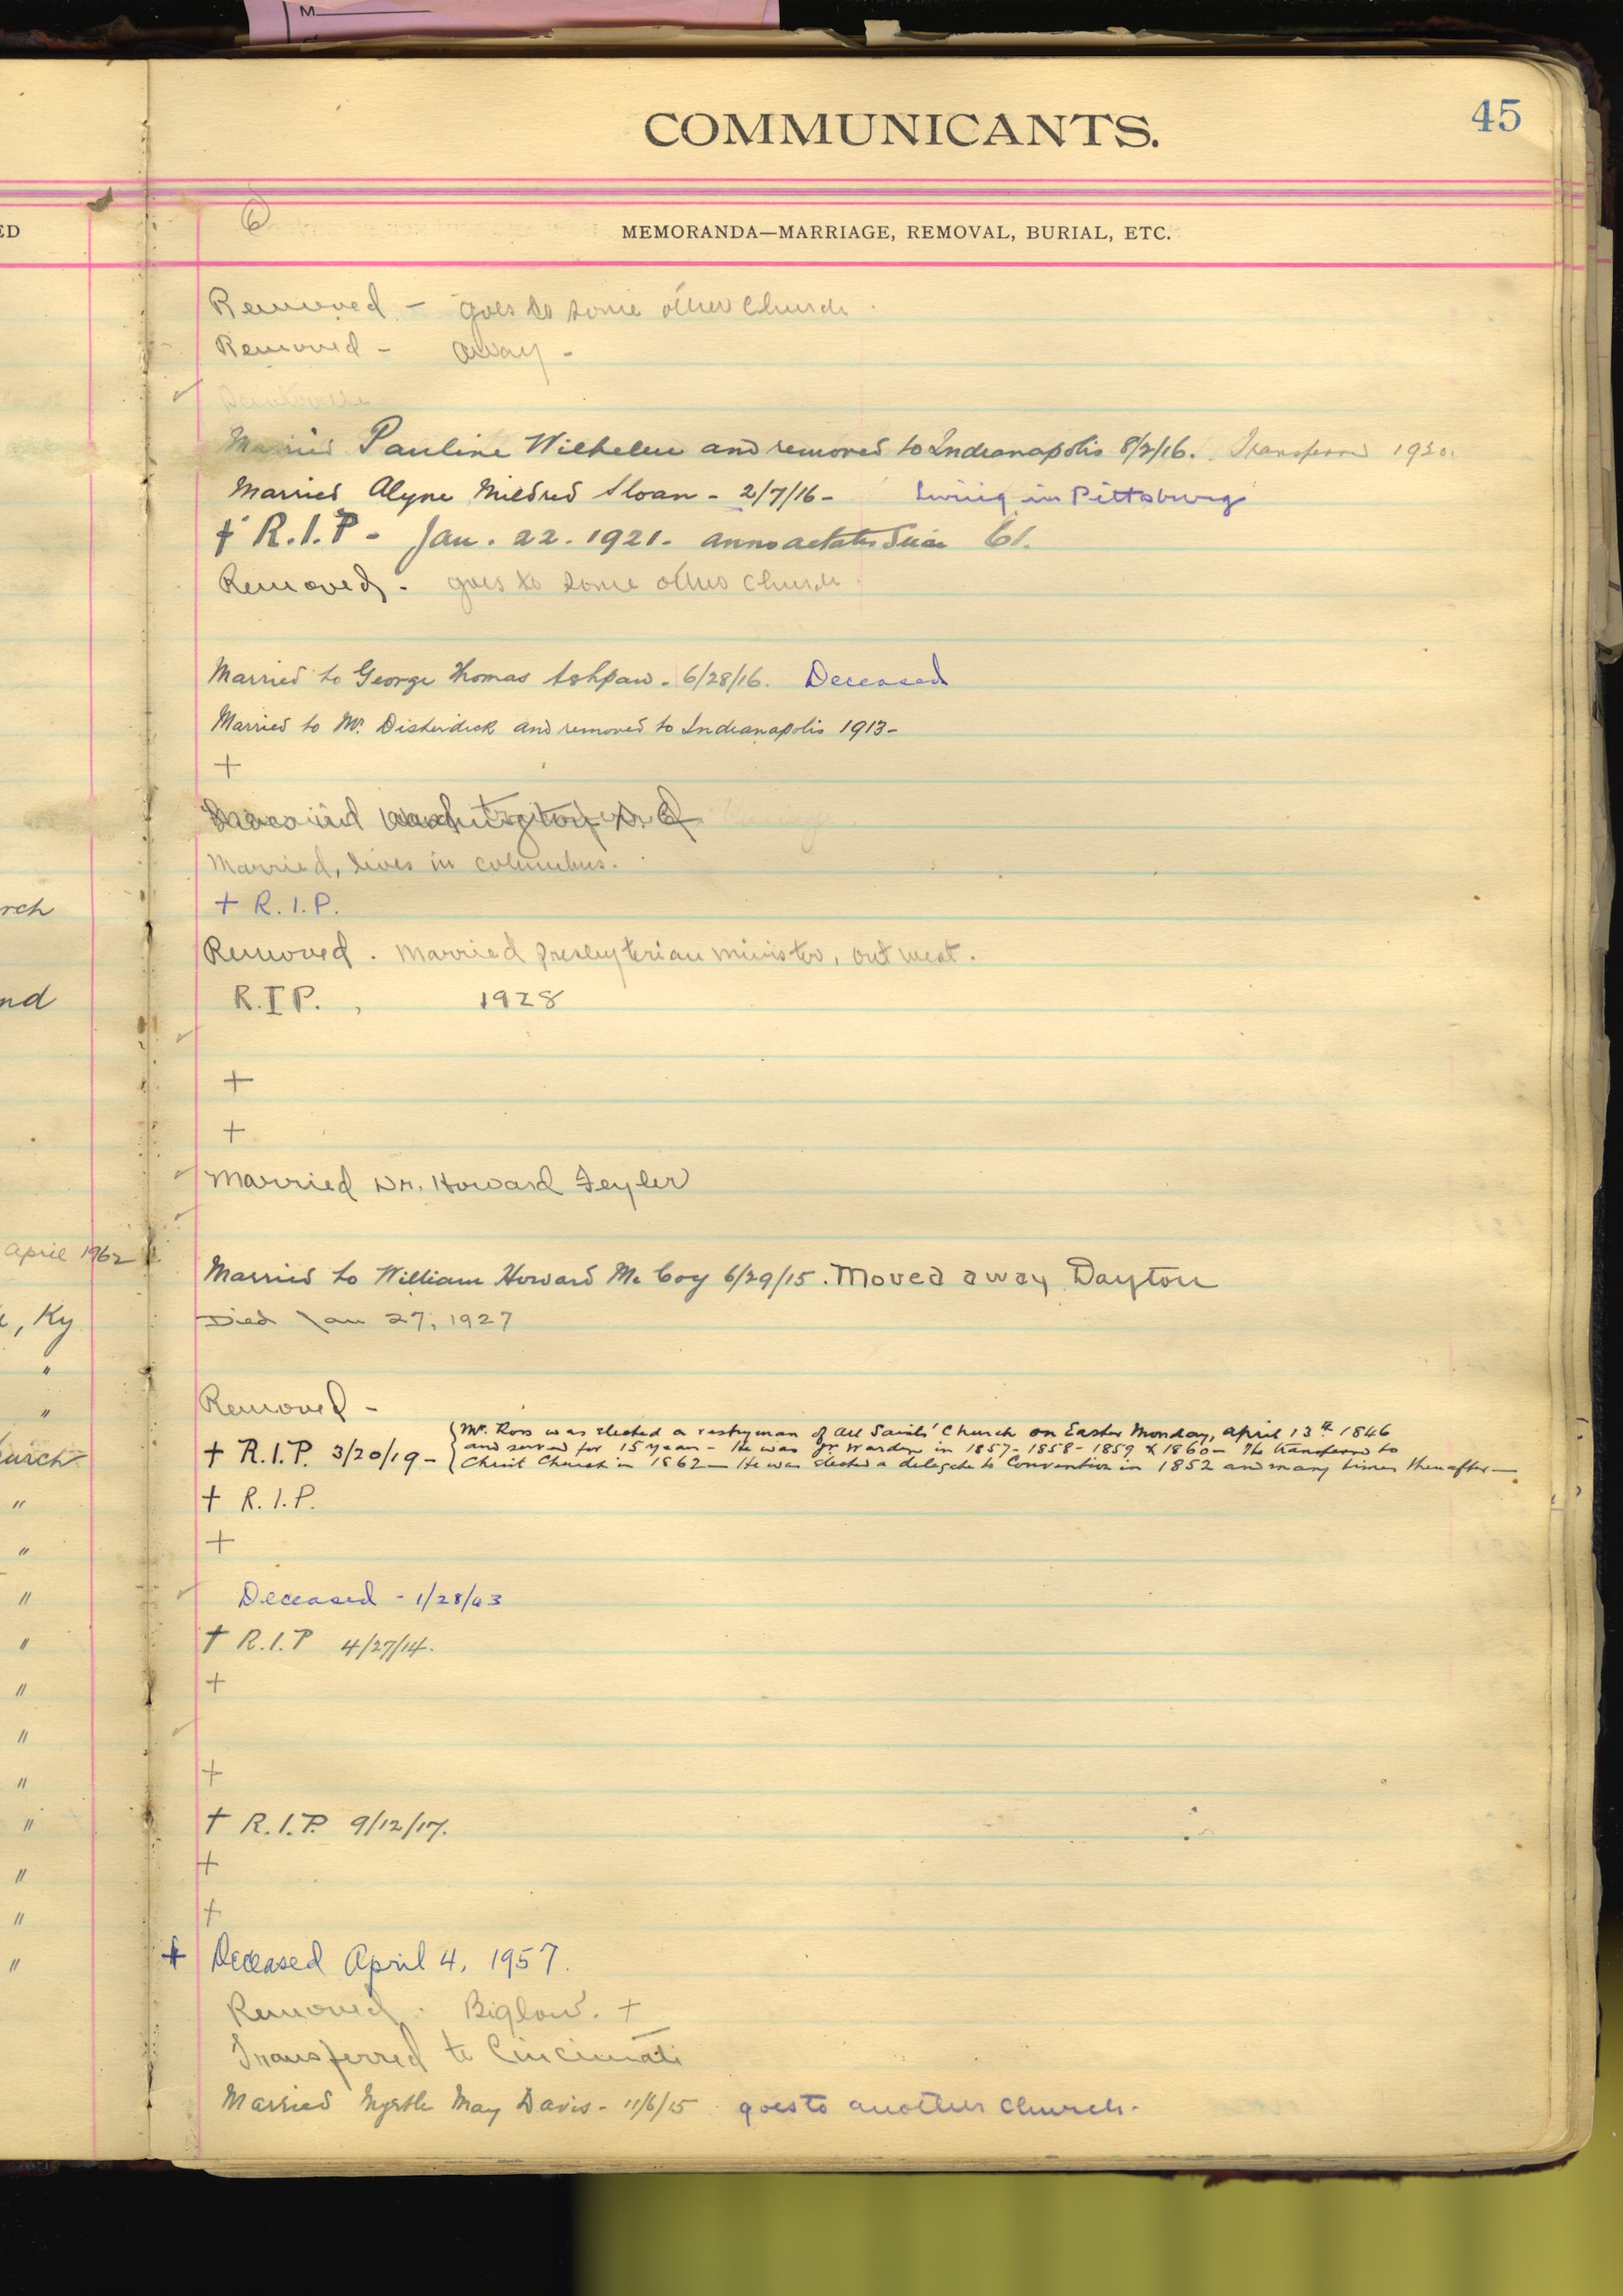 M
COMMUNICANTS.
45
ED
6
MEMORANDA—MARRIAGE, REMOVAL, BURIAL, ETC.
Removed - goes to some other church.
Removed - away -
Married Pauline Wilhelm and removed to Indianapolis 8/2/16. Transferred 1920.
Married Alyne Mildred Sloan - 2/7/16 - living in Pittsburg
† R.I.P - Jan. 22. 1921. anno aetatis suae 61.
Removed. goes to some other church.
Married to George Thomas Ashpaw. 6/28/16. Deceased
Married to Mr. and removed to Indianapolis 1913-
+
Washington D.C.
Married, lives in columbus.
rch
+ R.I.P.
Removed. Married presbyterian minister, out west.
nd
R.I.P. , 1928
+
+
Married Dr. Howard Feyler
April 1962
Married to William Howard McCoy 6/29/15. Moved away Dayton
, Ky
Died Jan 27, 1927
"
"
Removed -
Mr. Ross was elected a vestryman of All Saints' Church on Easter Monday, April 13th 1846
urch
† R.I.P. 3/20/19 - and served for 15 years - He was Jr. Warden in 1857-1858-1859 & 1860 - He transferred to
Christ Church in 1862 - He was elected a delegate to Convention in 1852 and many times thereafter -
"
† R.I.P.
"
+
"
Deceased - 1/28/43
"
† R.I.P 4/27/14.
"
+
"
"
+
"
† R.I.P. 9/12/17.
"
+
"
+
"
+ Deceased April 4, 1957.
Removed. Biglow. +
Transferred to Cincinnati
Married Myrtle May Davis - 11/6/15 goes to another church.